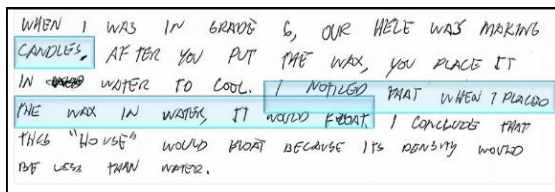 WHEN I WAS IN GRADE 6, OUR HELE WAS MAKING
CANDLES. AFTER YOU PUT THE WAX, YOU PLACE IT
IN WATER TO COOL. I NOTICED THAT WHEN I PLACED
THE WAX IN WATER, IT WOULD FLOAT. I CONCLUDE THAT
THIS "HOUSE" WOULD FLOAT BECAUSE ITS DENSITY WOULD
BE LESS THAN WATER.